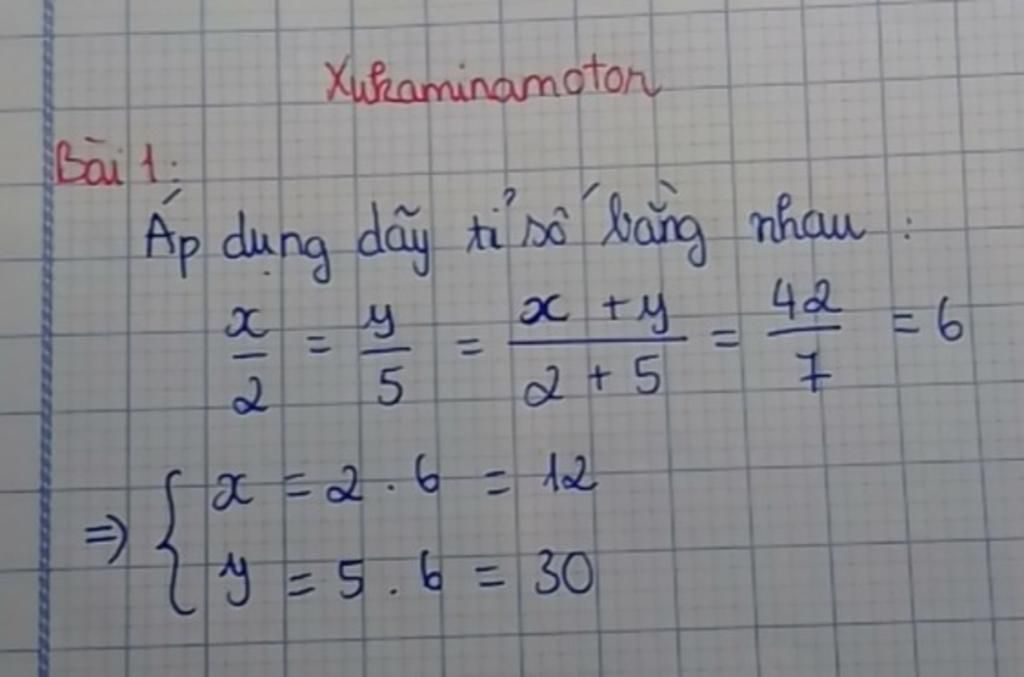 Xukaminamoton
Bài 1:
Áp dụng dãy tỉ số bằng nhau :
x/2 = y/5 = (x + y)/(2 + 5) = 42/7 = 6
=> { x = 2 . 6 = 12
y = 5 . 6 = 30